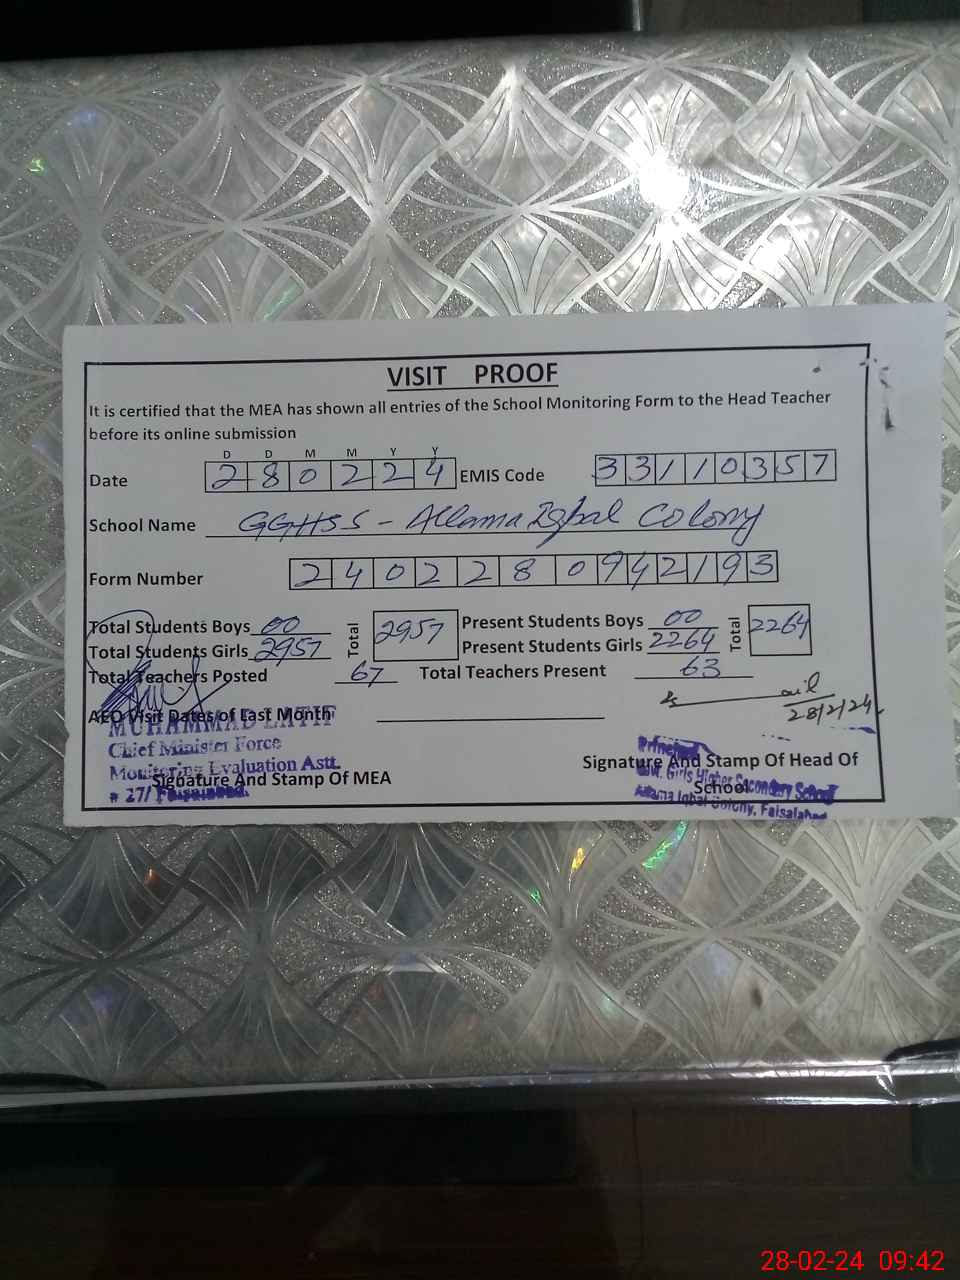 VISIT PROOF
It is certified that the MEA has shown all entries of the School Monitoring Form to the Head Teacher
before its online submission
D D M M Y Y
Date 280224 EMIS Code 33110357
School Name GGHSS - Allama Iqbal Colony
Form Number 2402280942193
Total Students Boys 00 Total 2957 Present Students Boys 00 Total 2264
Total Students Girls 2957 Present Students Girls 2264
Total Teachers Posted 67 Total Teachers Present 63
28/2/24
AEO Visit Dates of Last Month
MUHAMMAD LATIF
Chief Minister Force
Monitoring Evaluation Astt.
# 27/ Faisalabad.
Signature And Stamp Of MEA
Signature And Stamp Of Head Of
School
Principal
Govt. Girls Higher Secondary School
Allama Iqbal Colony, Faisalabad
28-02-24 09:42